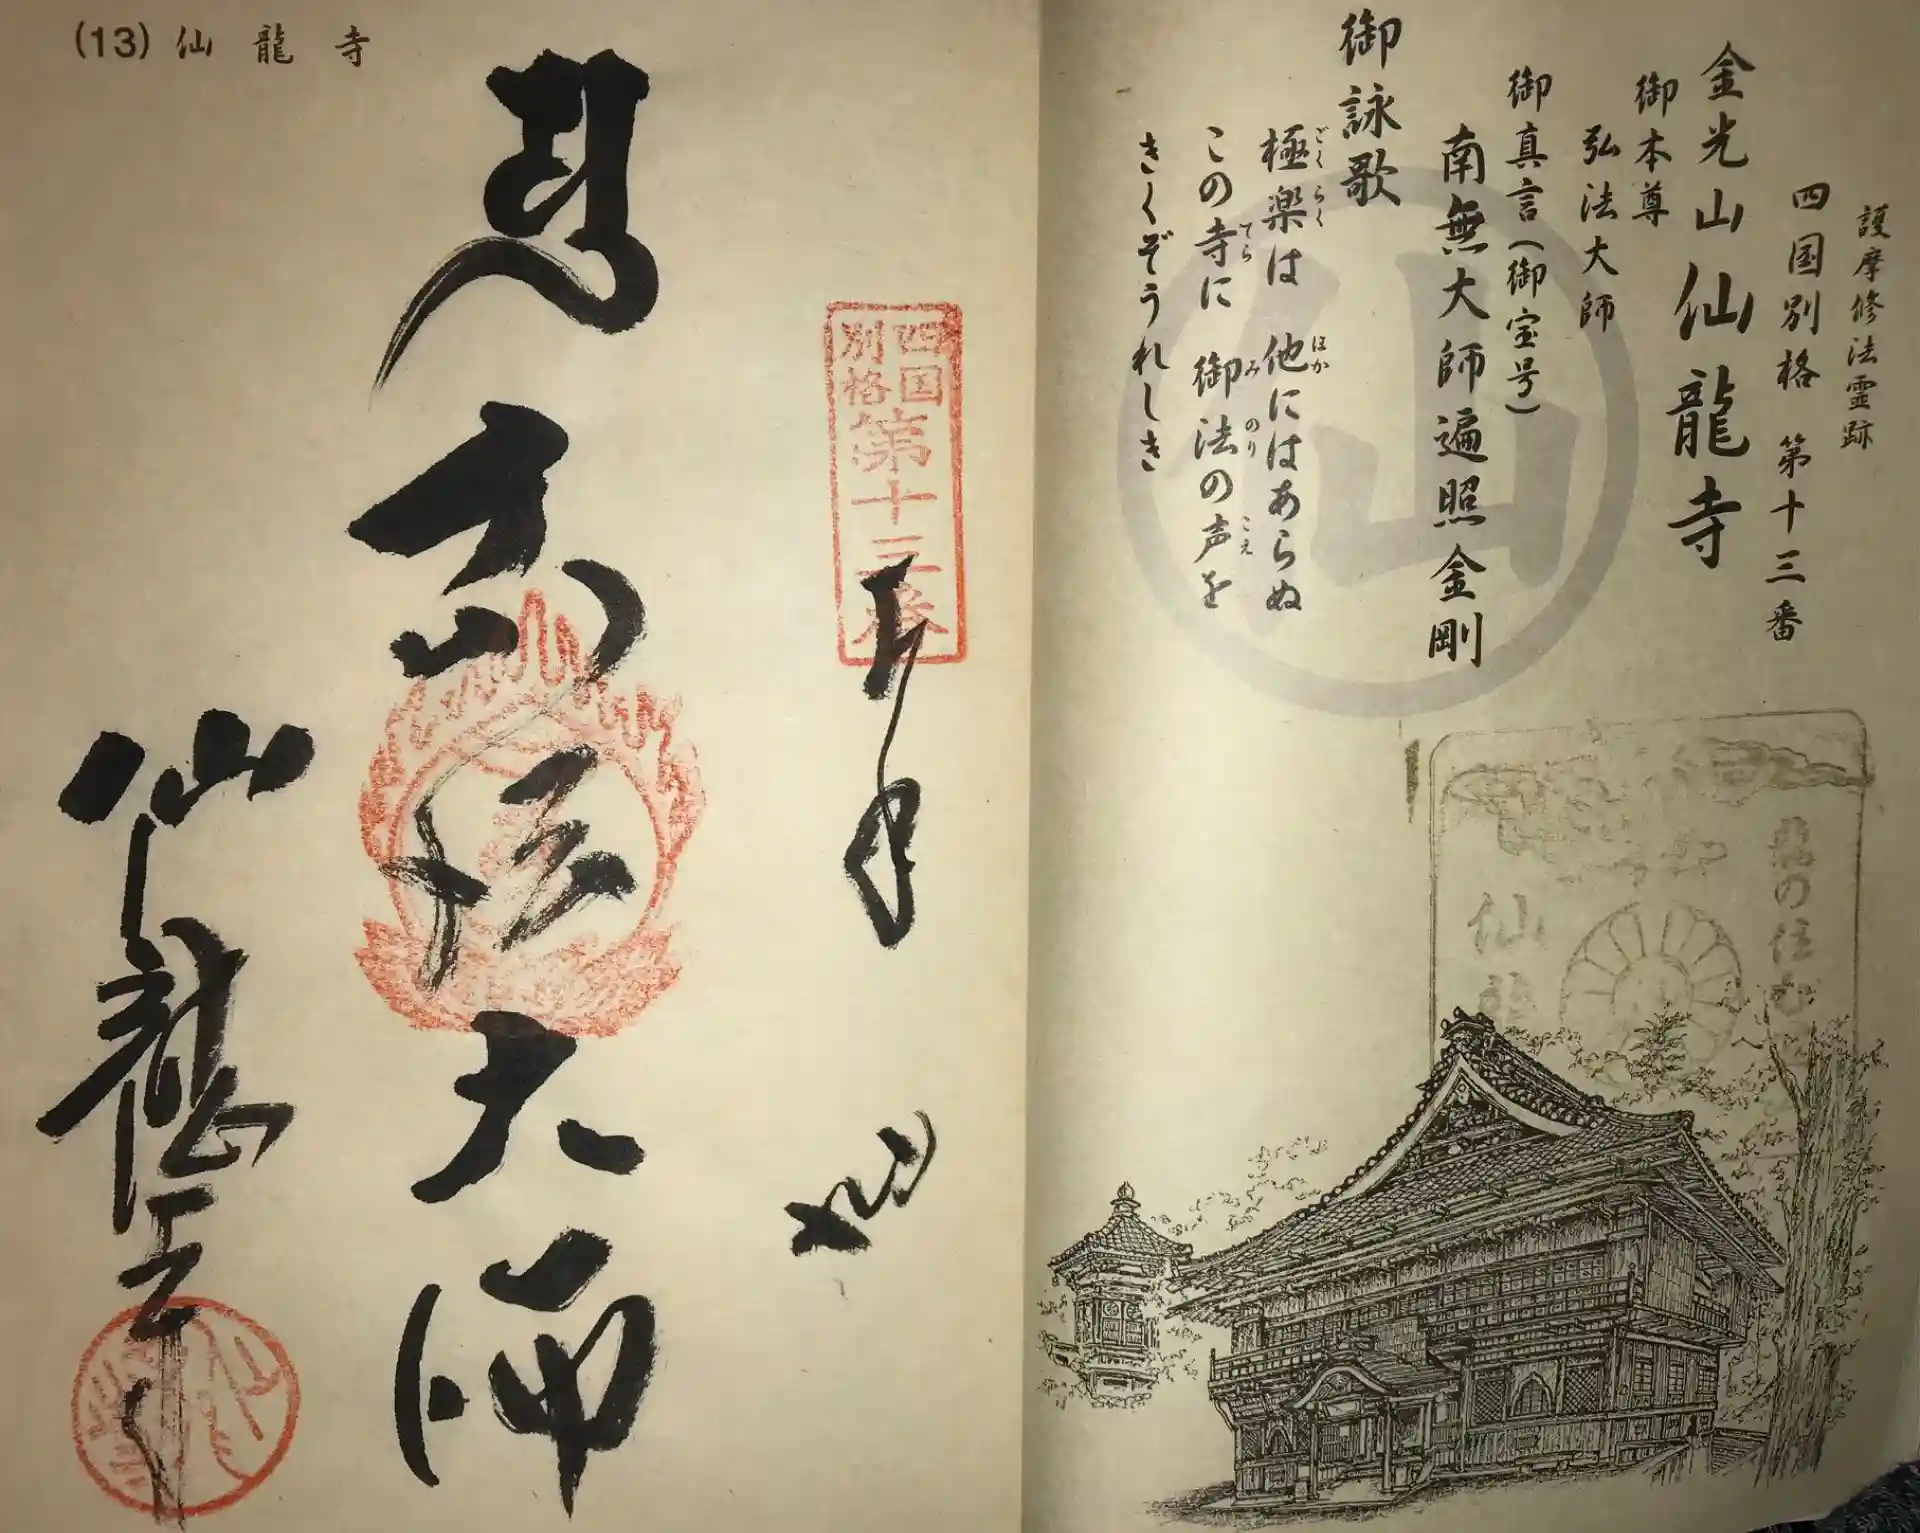 護摩修法霊跡
四国別格 第十三番
金光山 仙龍寺
御本尊
弘法大師
御真言(御宝号)
南無大師遍照金剛
御詠歌
極楽は 他にはあらぬ
ごくらく ほか
この寺に 御法の声を
てら み のり こえ
きくぞうれしき
仙
龍の住む
仙龍
(13) 仙龍寺
四国
別格
第十三番
奉拝
弘法大師
仙龍寺